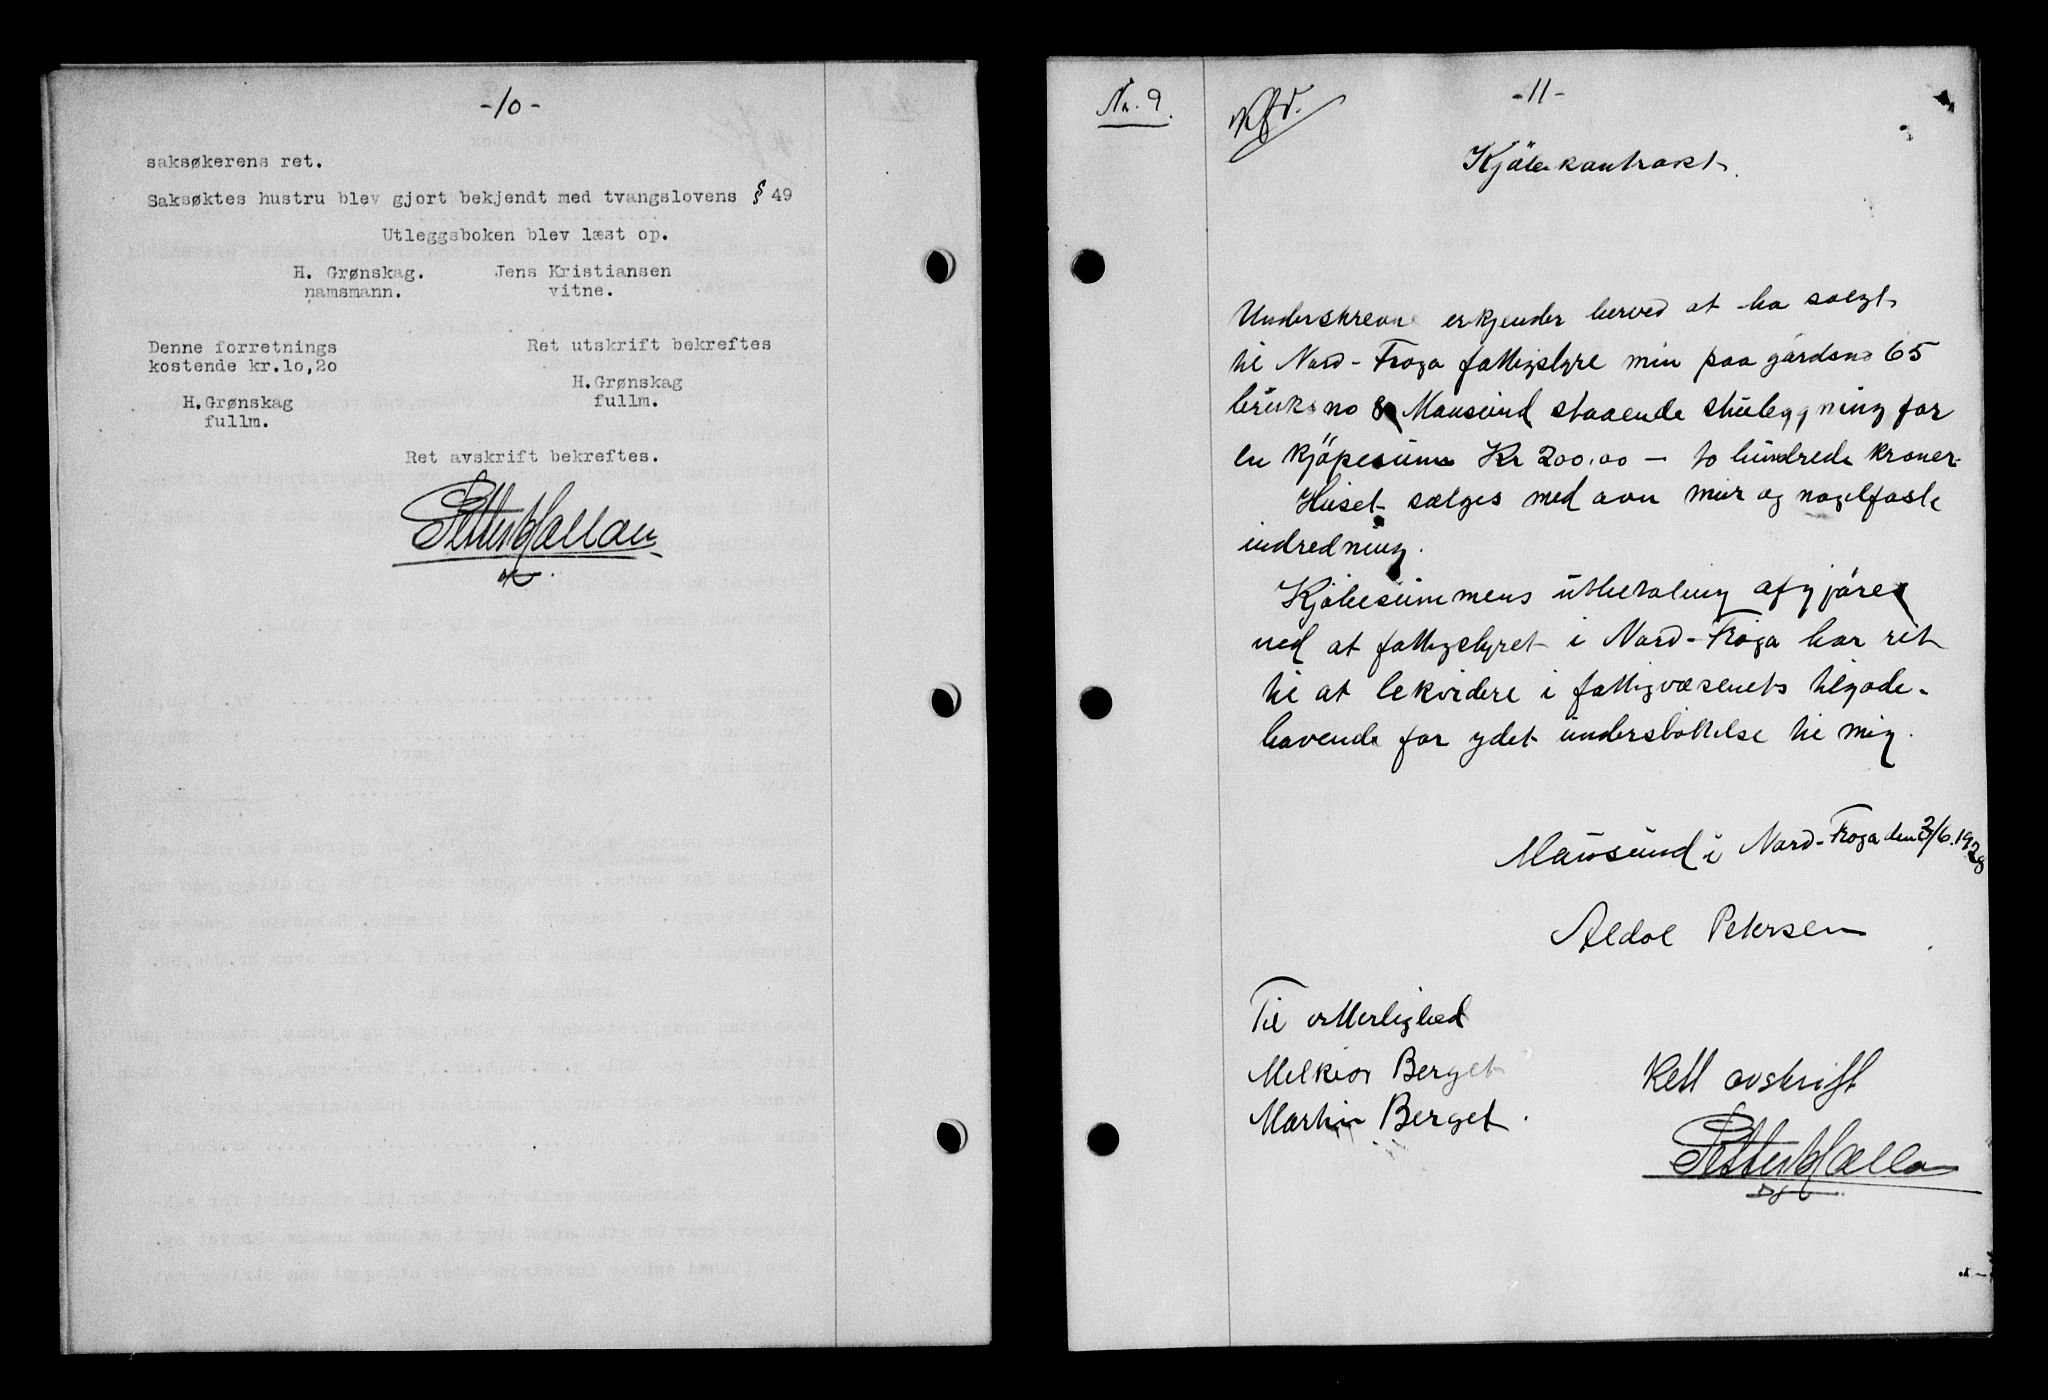 -10-
saksøkerens ret.
Saksøktes hustru blev gjort bekjendt med tvangslovens § 49
Utleggsboken blev læst op.
H. Grønskag. Jens Kristiansen
namsmann. vitne.
Denne forretnings Ret utskrift bekreftes
kostende kr.10,20
H.Grønskag
fullm.
H.Grønskag
fullm.
Ret avskrift bekreftes.
Petter Hallan
Nr. 9.
-11-
Kjöbekontrakt.
Underskrevne erkjender herved at ha solgt
til Nord-Frøya fattigstyre min paa gårdsno 65
bruksno 8 Mausund staaende stuebygning for
en kjöpesum Kr 200.00 — to hundrede kroner
Huset sælges med ovn mur og nagelfaste
indredning.
Kjöbesummens utbetaling afgjöres
ved at fattigstyret i Nord-Fröya har ret
til at lekvidere i fattigvæsenets tilgode-
havende for ydet understöttelse til mig.
Mausund i Nord-Fröya den 3/6.1928
Aldol Petersen
Til vitterlighed
Melkior Berget
Martin Berget.
Rett avskrift
Petter Hallan